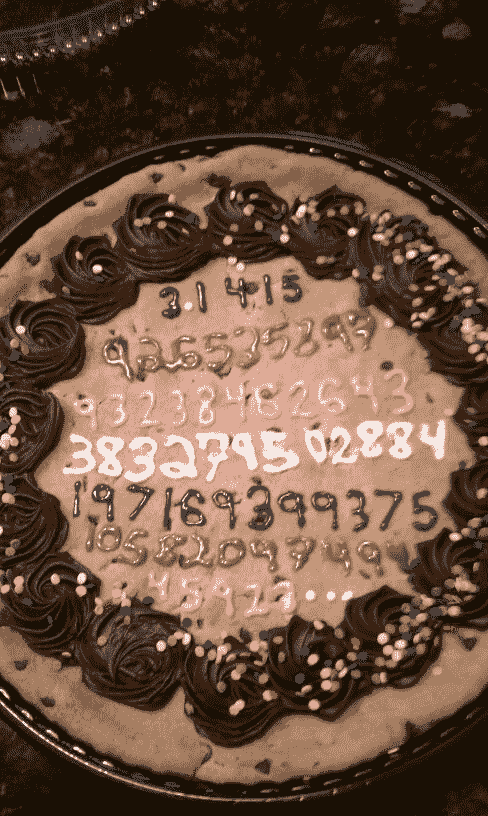 3.1415
926535897
93238462643
3832795 02884
197169399375
10582097494
45923...